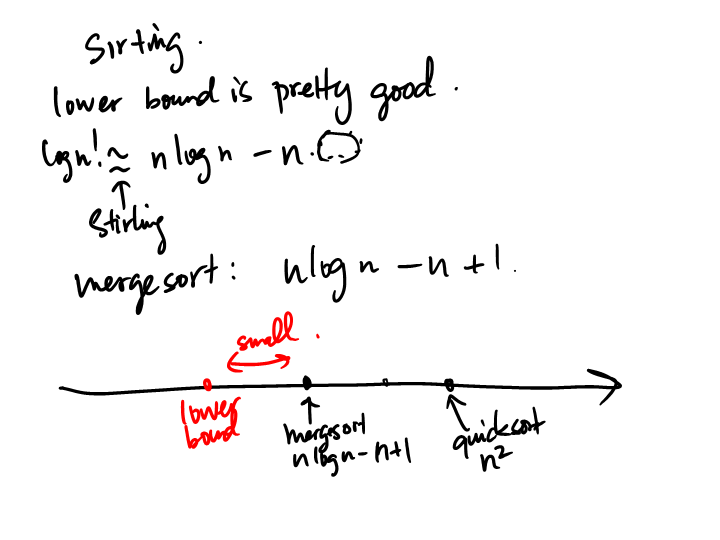 Sirting.
lower bound is pretty good.
log n! ≈ n log n - n·(...)
↑
Stirling
merge sort: n log n - n + 1.
small.
lower
bound
mergesort
n log n - n + 1
quicksort
n²